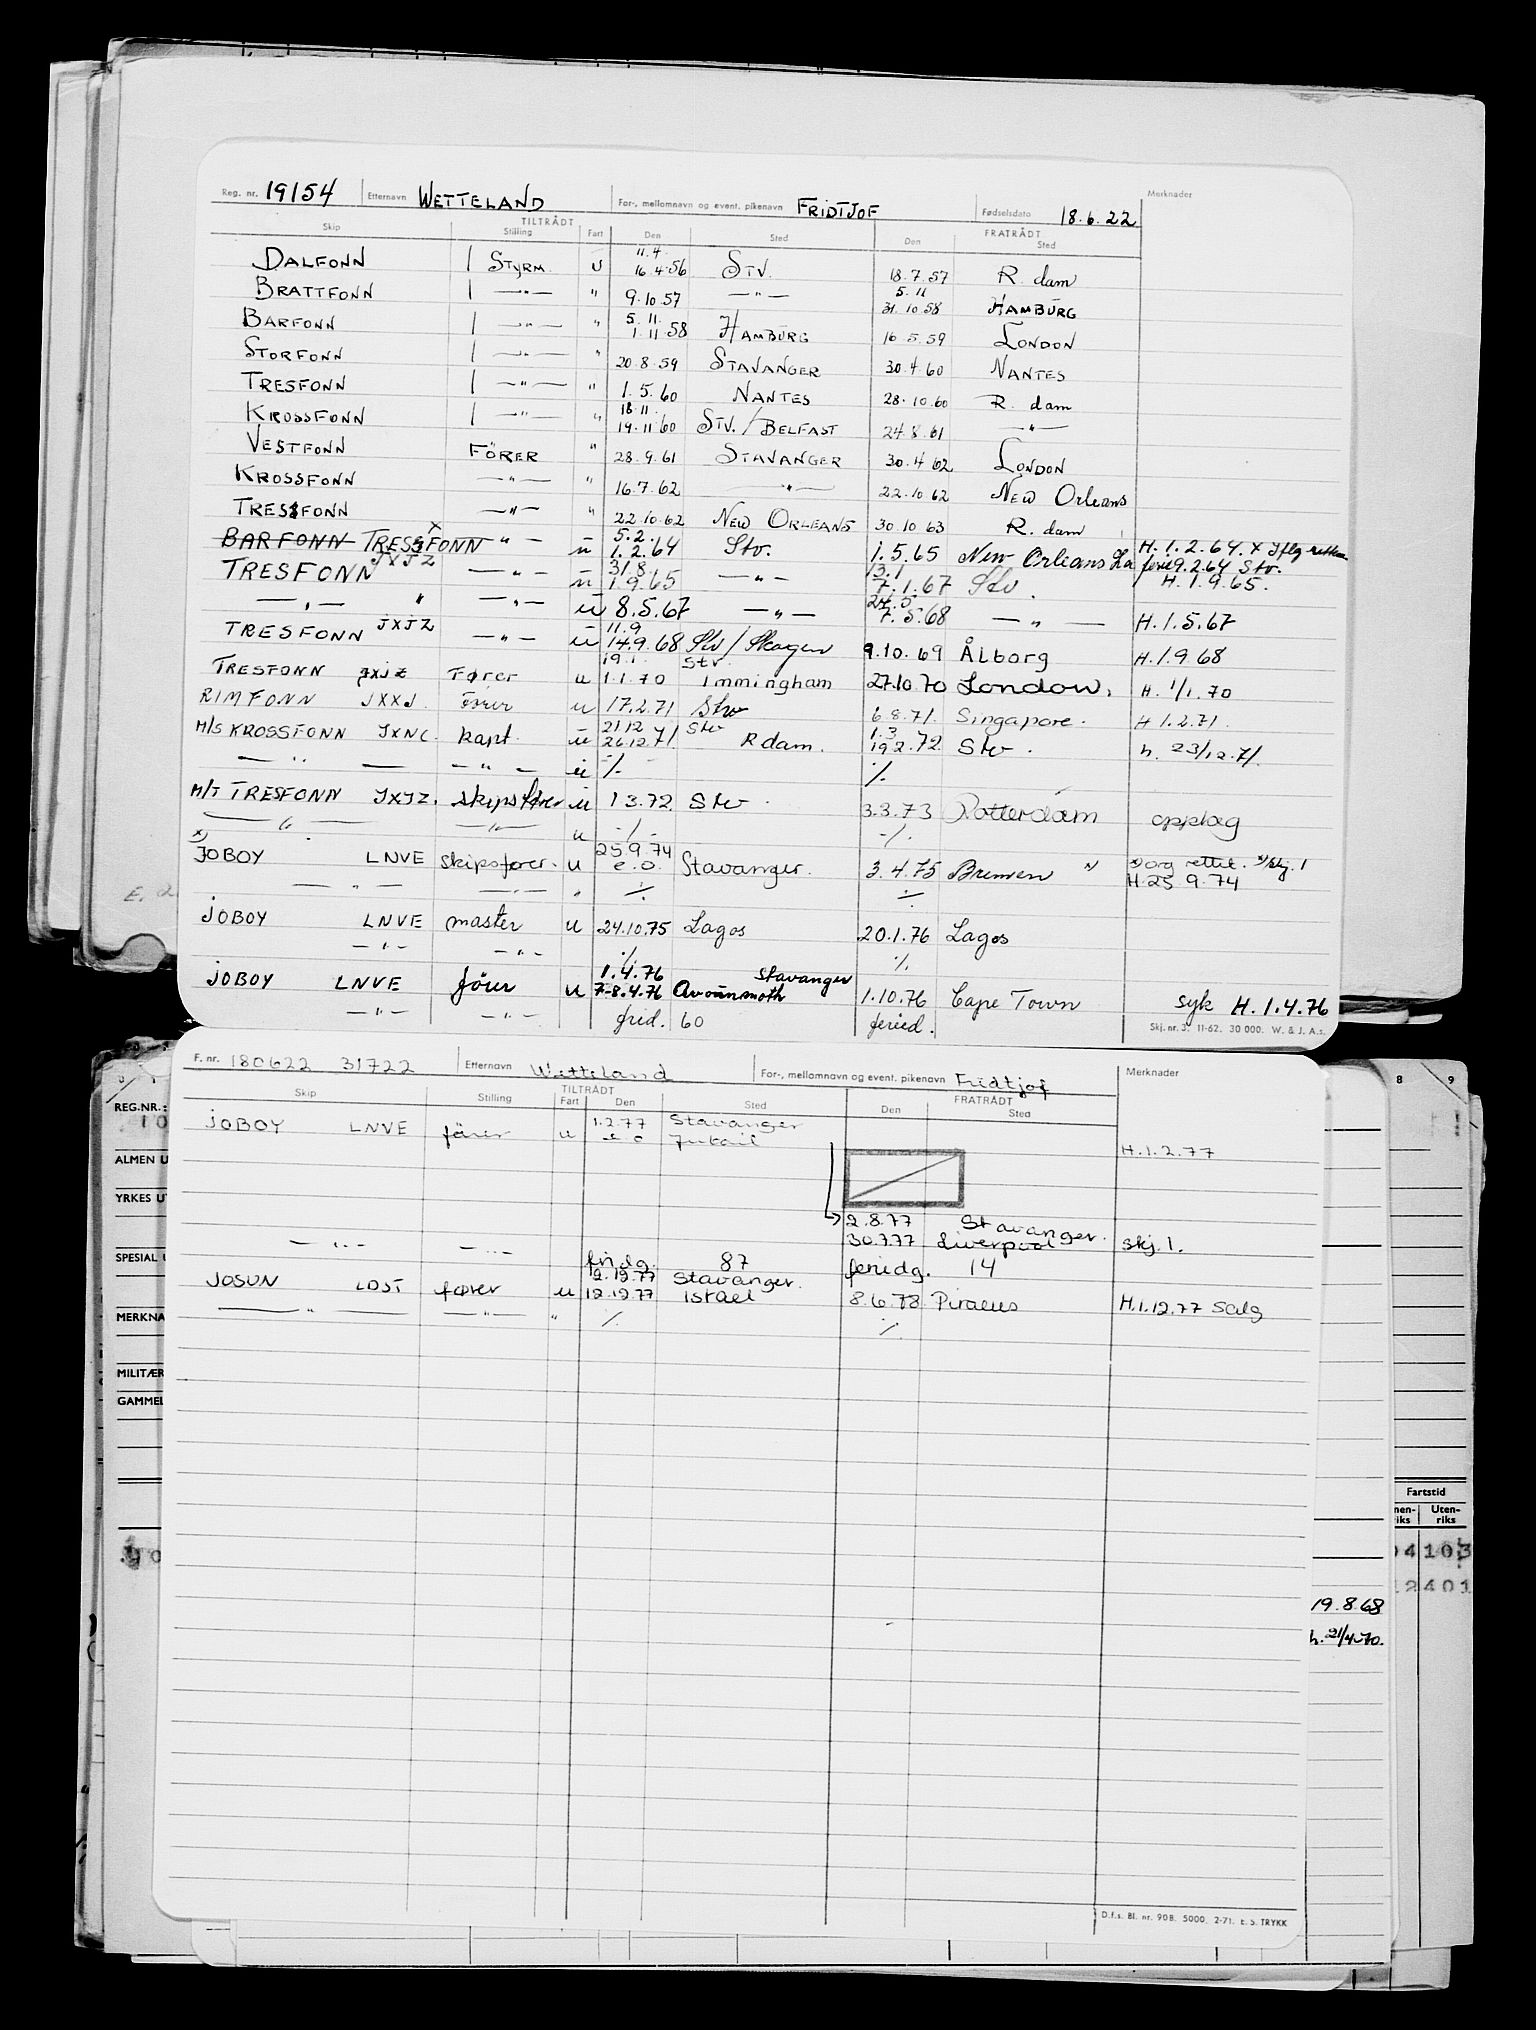 Reg. nr. 19154 Etternavn WETTELAND For-, mellomnavn og event. pikenavn FRIDTJOF Fødselsdato 18.6.22 Merknader
TILTRÅDT FRATRÅDT
Skip Stilling Fart Den Sted Den Sted
11.4.
DALFONN 1 STYRM. U 16.4.56 STV. 18.7.57 R. dam
5.11
BRATTFONN 1 —"— " 9.10.57 —"— 31.10.58 HAMBURG
5.11.
BARFONN 1 —"— " 1.11.58 HAMBURG 16.5.59 LONDON
STORFONN 1 —"— " 20.8.59 STAVANGER 30.4.60 NANTES
TRESFONN 1 —"— " 1.5.60 NANTES 28.10.60 R. dam
18.11.
KROSSFONN 1 —"— " 19.11.60 STV./BELFAST 24.8.61 —"—
VESTFONN FÖRER " 28.9.61 STAVANGER 30.4.62 LONDON
KROSSFONN —"— " 16.7.62 —"— 22.10.62 NEW Orleans
TRESFONN —"— " 22.10.62 NEW ORLEANS 30.10.63 R. dam
5.2.
BARFONN TRESFONN x —"— u 1.2.64 Stv. 1.5.65 New Orleans La H. 1.2.64. x Iflg
JXJZ 31.8. 13.1 9.2.64 Stv.
TRESFONN —"— u 1.9.65 —"— 7.1.67 Stv. H. 1.9.65.
24.5.
—"— " —"— u 8.5.67 —"— 7.5.68 —"— H.1.5.67
11.9
TRESFONN JXJZ —"— u 14.9.68 Stv/Skagen 9.10.69 ÅLborg H.1.9.68
19.1. Stv.
TRESFONN JXJZ Fører u 1.1.70 Immingham 27.10.70 London. H. 1/1.70
RIMFONN JXXJ. Fører u 17.2.71 Stv 6.8.71. Singapore. H 1.2.71.
21.12 Stv 1.3
M/S KROSSFONN JXNC. kapt. u 26.12.71. R dam. 19.2.72 Stv. h. 23/12.71.
—"— —"— u ./. ./.
M/T TRESFONN JXJZ. skipsfører u 1.3.72 Stv. 3.3.73 Rotterdam opplag
—"— —"— u ./. ./.
x) 25.9.74
JOBOY LNVE skipsfører. u e.o. Stavanger. 3.4.75 Bremen x) org rettet. x/skj. 1
H.25.9.74
—"— —"— " ./. ./.
JOBOY LNVE master u 24.10.75 Lagos 20.1.76 Lagos
—"— —"— ./. ./.
1.4.76 Stavanger
JOBOY LNVE förer u 7-8.4.76 Avounmoth 1.10.76 Cape Town syk H.1.4.76
—"— —"— frid. 60 feried.
Skj. nr. 3. 11-62. 30 000. W. & J. A.s.
F. nr. 180622 31722 Etternavn Wetteland For-, mellomnavn og event. pikenavn Fridtjof Merknader
TILTRÅDT FRATRÅDT
Skip Stilling Fart Den Sted Den Sted
1.2.77 Stavanger
JOBOY LNVE fører u e o Jubail H.1.2.77
2.8.77 Stavanger.
30.7.77 Liverpool skj.1.
—"— —"— fridg. 87 feriedg. 14
12.12.77 Stavanger.
JOSUN LDST fører u 12.12.77 Israel 8.6.78 Piraeus H.1.12.77 Salg
—"— —"— " ./. ./.
D.f.s. Bl. nr. 90B. 5000. 2-71. E. S. TRYKK
REG.NR.:
ALMEN U
YRKES U
SPESIAL U
MERKNA
MILITÆR
GAMMEL
8 9
Fartstid
Uten-riks
04 103
12 401
19.8.68
h. 21/4-70.